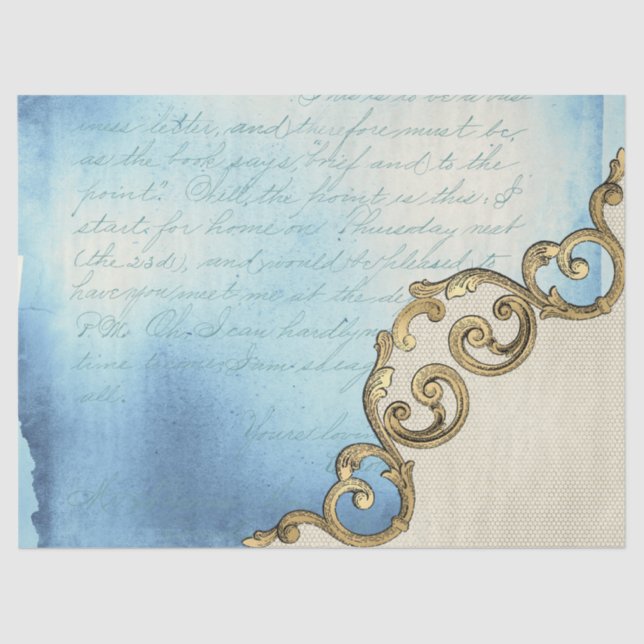 This is to be a bus-
iness letter, and therefore must be,
as the book says, "brief and to the
point". Well, the point is this: I
start for home on Thursday next
(the 23d), and would be pleased to
have you meet me at the de
P.M. Oh I can hardly
time to come, I am so
all.
Yours lovin